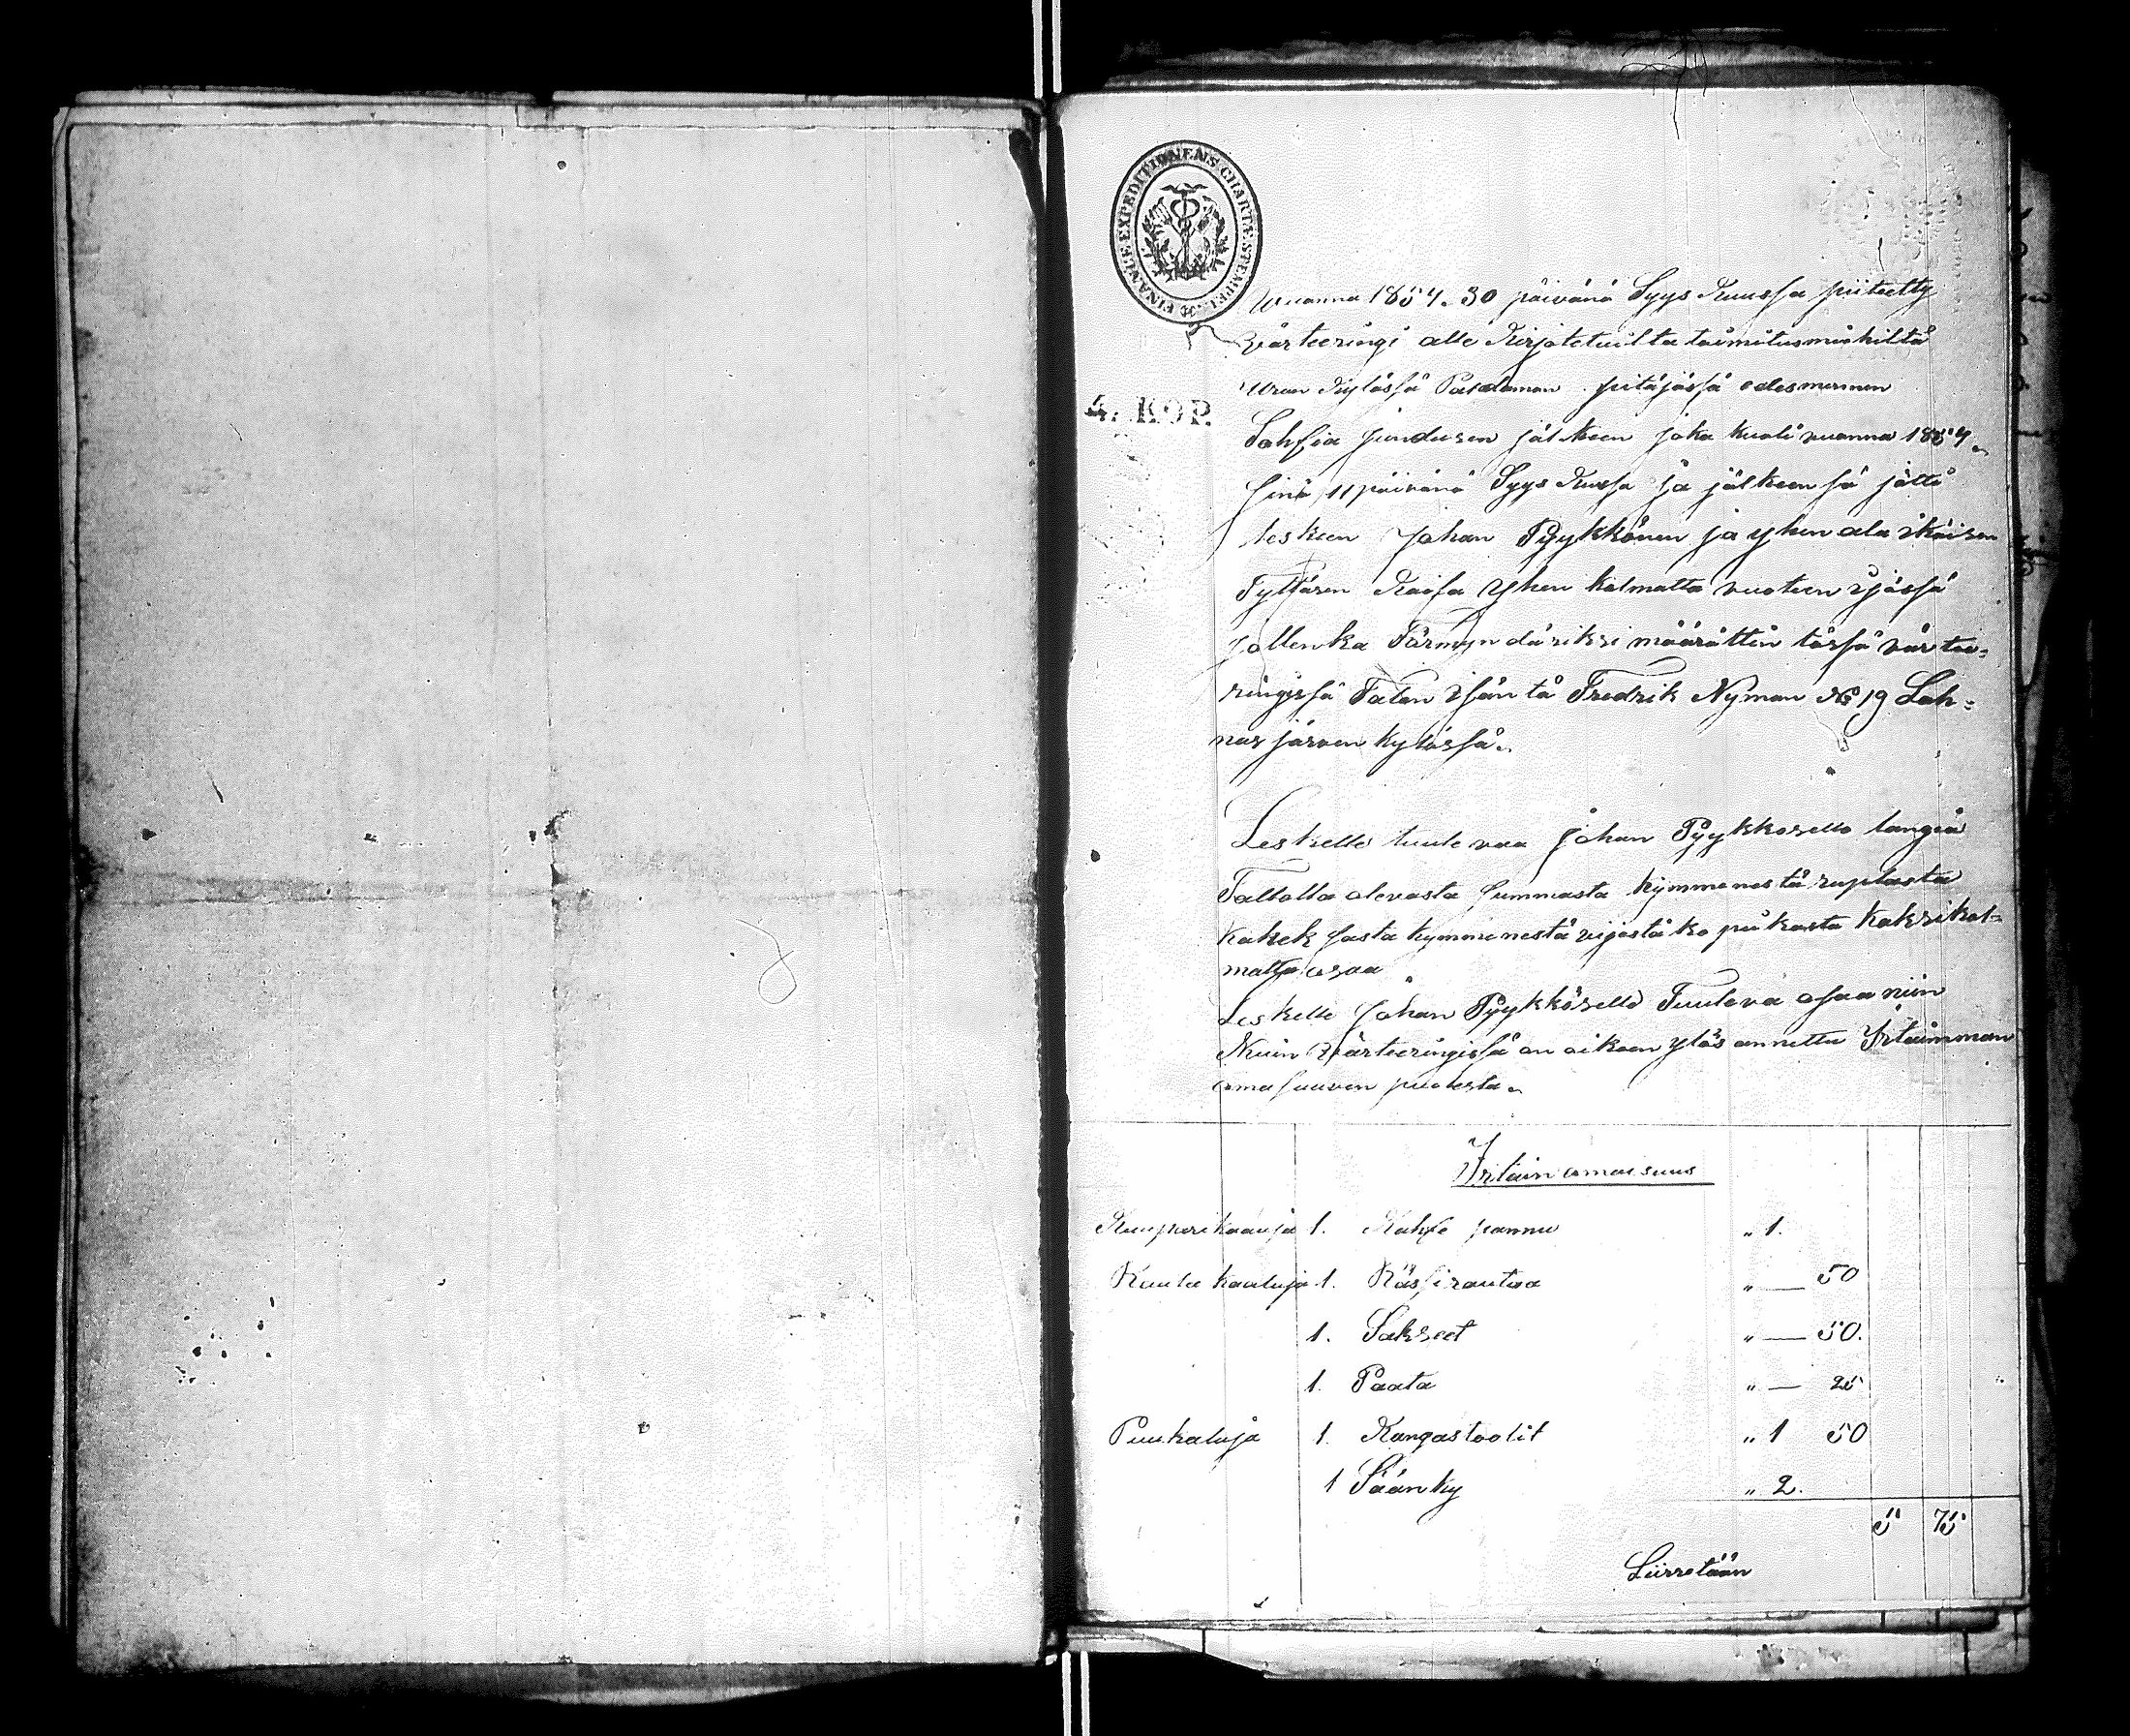 FINANCE EXPEDITIONENS CHARTÆ STEMPEL
Wuonna 1854. 30 päivänä Syys Kuussa piiteetty
Värteeringi alle Kirjoteteuilta toimitusmiehiltä
Kylässä Paldaman pitäjässä edesmennen
4. KOP.
Sohfia jälkeen joka kuoli vuonna 1854
sinä 11 päivänä Syys Kuussa ja jälkeensä jätti
lesken Johan Pyykkönen ja yhen ala ikäisen
Tyttären Kaisa Yhen kolmatta vuoteen ijässä
jollenka Färmyndäriksi määrättin tässä värtee=
ringissä Talon Isäntä Fredrik Nyman No 19 Lah=
nas järven kylässä.
Leskelle tuule vaa Johan Pyykkösello langia
Tallolla olevasta summasta kymmenestä ruplasta
kahek sasta kymmenestä vijestä ko pekasta kaksikol=
matta osaa
Leskelle Johan Pyykkösello Tuuleva osaa niin
Kuin Värteeringissä on oikeen ylös annettu Irtaimman
omasuuven puolesta.
Irtain omaisuus
Kuuparikaaluja 1. Kahfe pannu " 1.
Rauta kaaluja 1. Käsirautaa " — 50
1. Sakseet " — 50.
1. Paata " — 25
Puukaluja 1. Kangastoolit " 1 50
1 Säänky " 2.
5 75
Siirretään